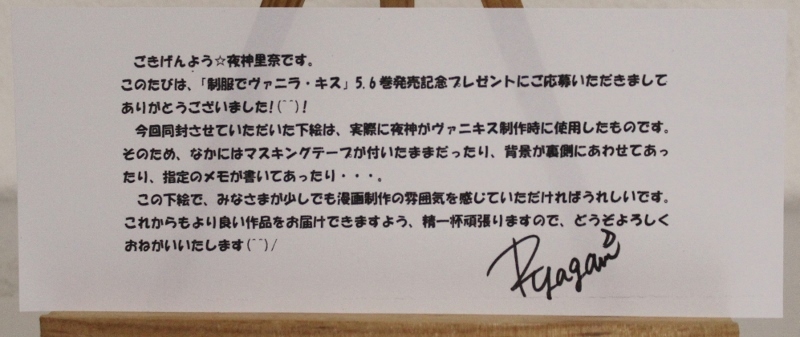 ごきげんよう☆夜神里奈です。
このたびは、「制服でヴァニラ・キス」5.6巻発売記念プレゼントにご応募いただきまして
ありがとうございました!(^^)!
今回同封させていただいた下絵は、実際に夜神がヴァニキス制作時に使用したものです。
そのため、なかにはマスキングテープが付いたままだったり、背景が裏側にあわせてあっ
たり、指定のメモが書いてあったり・・・。
この下絵で、みなさまが少しでも漫画制作の雰囲気を感じていただければうれしいです。
これからもより良い作品をお届けできますよう、精一杯頑張りますので、どうぞよろしく
おねがいいたします(^^)/
R.yagami